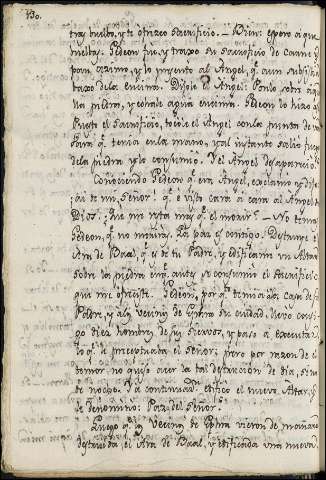 130.
tras buelto, y te ofrezco Sacrificio. — Bien: espero à que
bueltas. Gedeon fue, y traxo su Sacrificio de Carne y
pan azimo, y lo presento al Angel, q.e aun subsistia
baxo de la encina. Dijole el Angel: Ponlo sobre aque
lla piedra, y echale agua encima. Gedeon lo hizo asi
Puesto el Sacrificio, tocole el Angel con la punta de una
Vara q.e tenia en la mano, y al instante salio fuego
de la piedra y lo consumio. Y el Angel desaparecio.
Conociendo Gedeon q.e era Angel, exclamo y dijo:
¡ai de mi Señor! q.e è visto cara à cara al Angel de
Dios: ¿que me resta mas q.e el morir? — No temas
Gedeon, q.e no moriràs. La paz es contigo. Destruye el
Ara de Baal, q.e es de tu Padre, y edificame un Altar
sobre la piedra en q.e antes se consumio el Sacrificio
que me ofreciste. Gedeon, por q.e temia à la Casa de su
Padre, y à los Vecinos de Ephra su ciudad. Llevo consi
go diez hombres de sus Siervos, y paso à executar
lo q.e le preceptuaba el Señor; pero por razon de el
temor no quiso acer la tal destruccion de dia, sino
de noche. Y à continuacion edifico el nuevo Altar, y
le denomino: Paz del Señor.
Luego q.e los Vecinos de Ephra vieron de mañana
destruida el Ara de Baal, y edificada una nueva